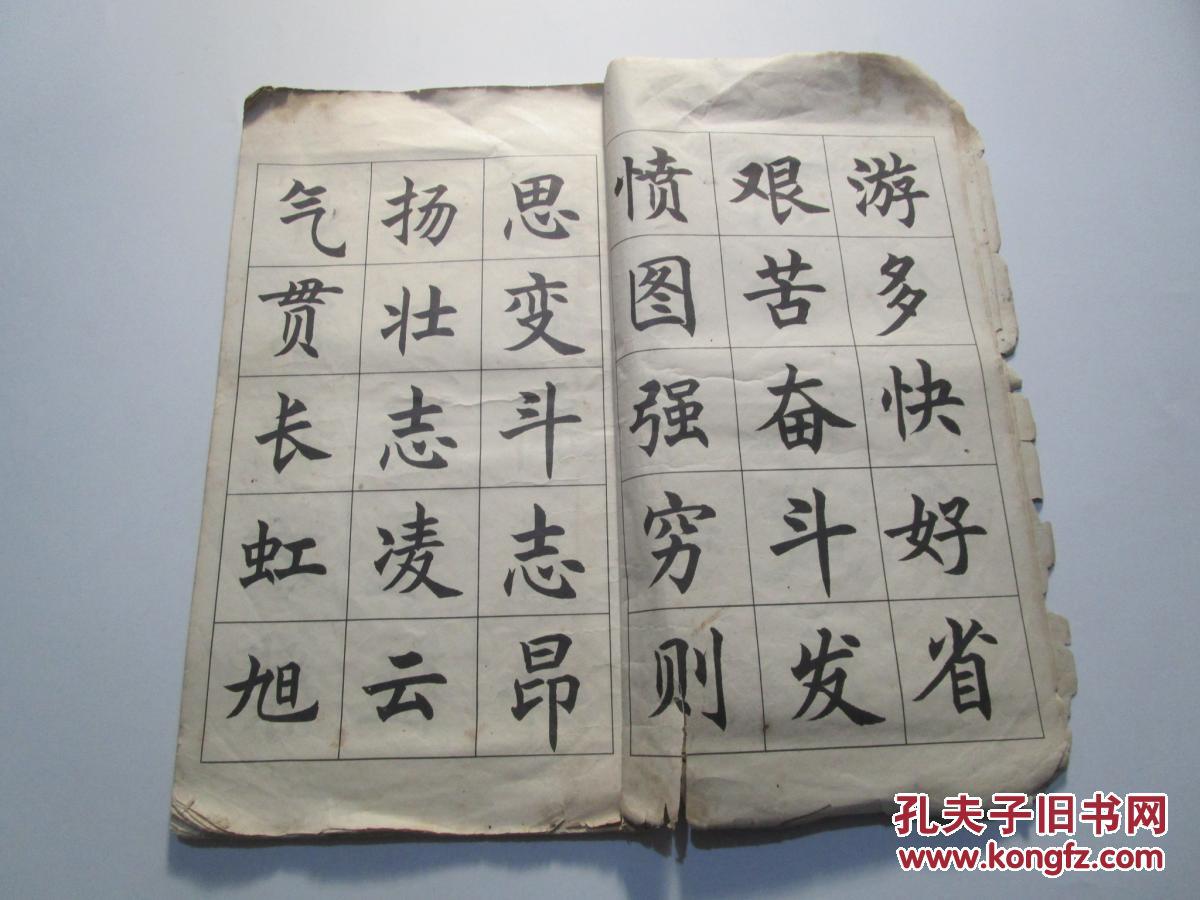 游多快好省
艰苦奋斗发
愤图强穷则
思变斗志昂
扬壮志凌云
气贯长虹旭
孔夫子旧书网
www.kongfz.com